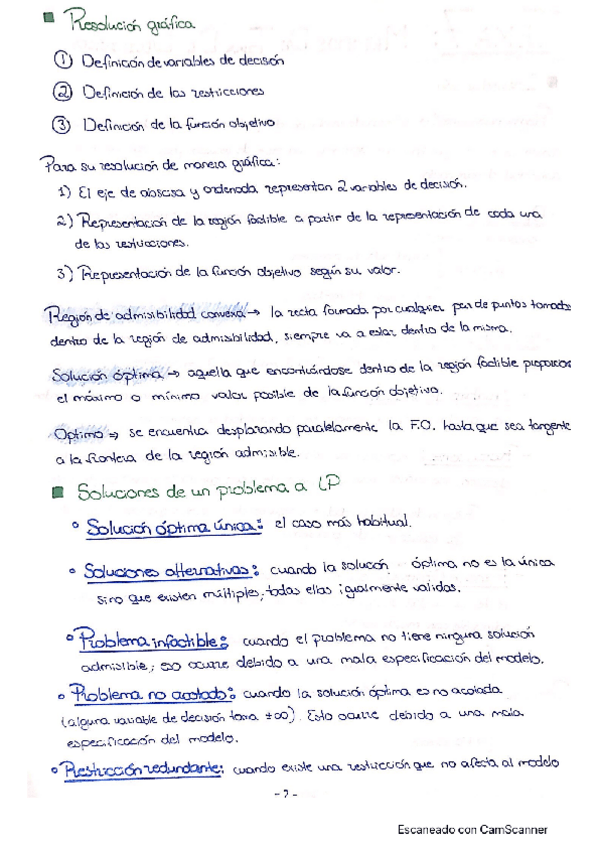 Resolución gráfica
① Definición de variables de decisión
② Definición de las restricciones
③ Definición de la función objetivo
Para su resolución de manera gráfica:
1) El eje de abscisa y ordenada representan 2 variables de decisión.
2) Representación de la región factible a partir de la representación de cada una
de las restricciones.
3) Representación de la función objetivo según su valor.
Región de admisibilidad convexa → la recta formada por cualquier par de puntos tomados
dentro de la región de admisibilidad, siempre va a estar dentro de la misma.
Solución óptima → aquella que encontrándose dentro de la región factible proporciona
el máximo o mínimo valor posible de la función objetivo.
Optimo → se encuentra desplazando paralelamente la F.O. hasta que sea tangente
a la frontera de la región admisible.
Soluciones de un problema a LP
Solución óptima única: el caso más habitual.
Soluciones alternativas: cuando la solucón óptima no es la única
sino que existen múltiples, todas ellas igualmente validas.
Problema infactible: cuando el problema no tiene ninguna solución
admisible; eso ocurre debido a una mala especificación del modelo.
Problema no acotado: cuando la solución óptima es no acotada
(alguna variable de decisión toma ±∞). Esto ocurre debido a una mala
especificación del modelo.
Restricción redundante: cuando existe una restricción que no afecta al modelo
- 7 -
Escaneado con CamScanner